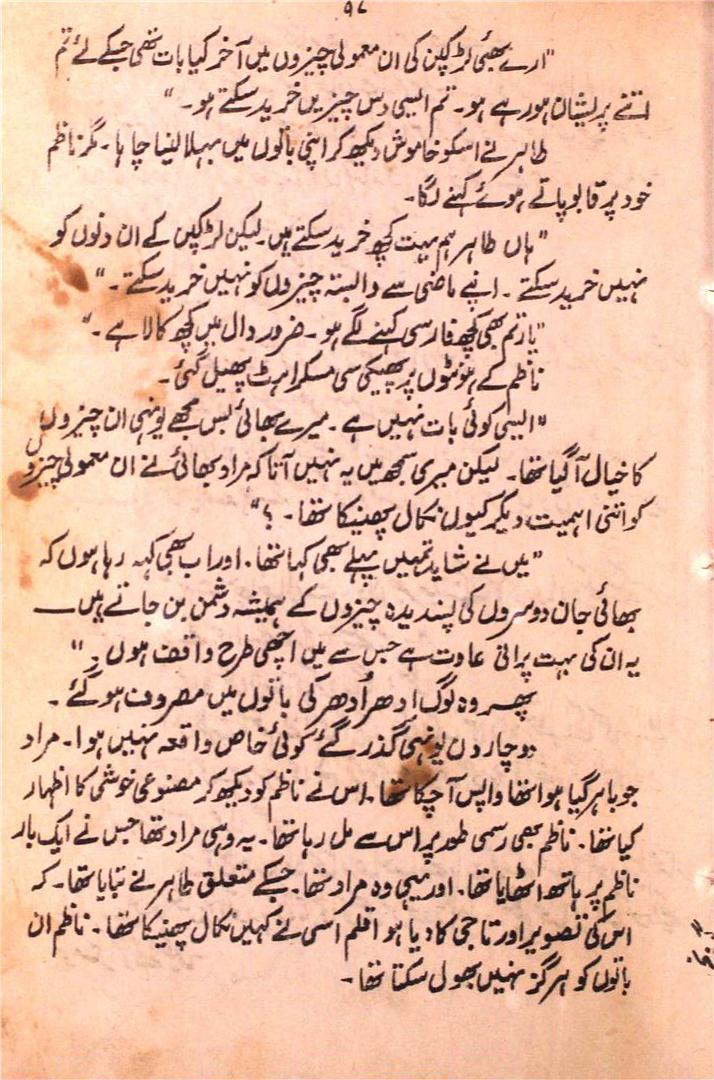 ۹۷
"ارے بھئی لڑکپن کی ان معمولی چیزوں میں آخر کیا بات تھی جسکے لئے تم
اتنے پریشان ہو رہے ہو۔ تم ایسی دس چیزیں خرید سکتے ہو۔"
طاہر نے اسکو خاموش دیکھ کر اپنی باتوں میں بہلا لینا چاہا۔ مگر ناظم
خود پر قابو پاتے ہوئے کہنے لگا۔
"ہاں طاہر ہم بہت کچھ خرید سکتے ہیں۔ لیکن لڑکپن کے ان دنوں کو
نہیں خرید سکتے۔ اپنے ماضی سے وابستہ چیزوں کو نہیں خرید سکتے۔"
"یار تم بھی کچھ فارسی کہنے لگے ہو۔ ضرور دال میں کچھ کالا ہے۔"
ناظم کے ہونٹوں پر پھیکی سی مسکراہٹ پھیل گئی۔
"ایسی کوئی بات نہیں ہے۔ میرے بھائی بس مجھے یونہی ان چیزوں
کا خیال آ گیا تھا۔ لیکن میری سمجھ میں یہ نہیں آتا کہ مراد بھائی نے ان معمولی چیزوں
کو اتنی اہمیت دیکر کیوں نکال پھینکا تھا۔ ؟"
"میں نے شاید تمہیں پہلے بھی کہا تھا۔ اور اب بھی کہہ رہا ہوں کہ
بھائی جان دوسروں کی پسندیدہ چیزوں کے ہمیشہ دشمن بن جاتے ہیں —
یہ ان کی بہت پرانی عادت ہے جس سے میں اچھی طرح واقف ہوں۔"
پھر وہ لوگ اِدھر اُدھر کی باتوں میں مصروف ہو گئے۔
دو چار دن یونہی گذر گئے کوئی خاص واقعہ نہیں ہوا۔ مراد
جو باہر گیا ہوا تھا واپس آ چکا تھا۔ اس نے ناظم کو دیکھ کر مصنوعی خوشی کا اظہار
کیا تھا۔ ناظم بھی رسمی طور پر اس سے مل رہا تھا۔ یہ وہی مراد تھا جس نے ایک بار
ناظم پر ہاتھ اٹھایا تھا۔ اور یہی وہ مراد تھا۔ جسکے متعلق طاہر نے بتایا تھا۔ کہ
اس کی تصویر اور تاجی کا دیا ہوا قلم اسی نے کہیں نکال پھینکا تھا۔ ناظم ان
باتوں کو ہرگز نہیں بھول سکتا تھا۔